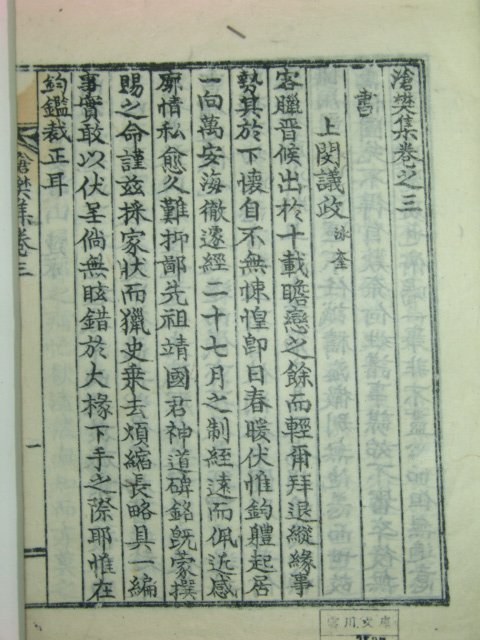 滄樊集卷之三
書
上閔議政 泳奎
客臘晋候出於十載瞻戀之餘而輕爾拜退縱緣事
勢其於下懷自不無悚惶卽日春暖伏惟鈞體起居
一向萬安海徹遽經二十七月之制經遠而佩近感
廓情私愈久難抑鄙先祖靖國君神道碑銘旣蒙撰
賜之命謹玆採家狀而獵史乘去煩縮長略具一編
事實敢以伏呈倘無眩錯於大椽下手之際耶惟在
鈞鑑裁正耳
滄樊集卷三
一